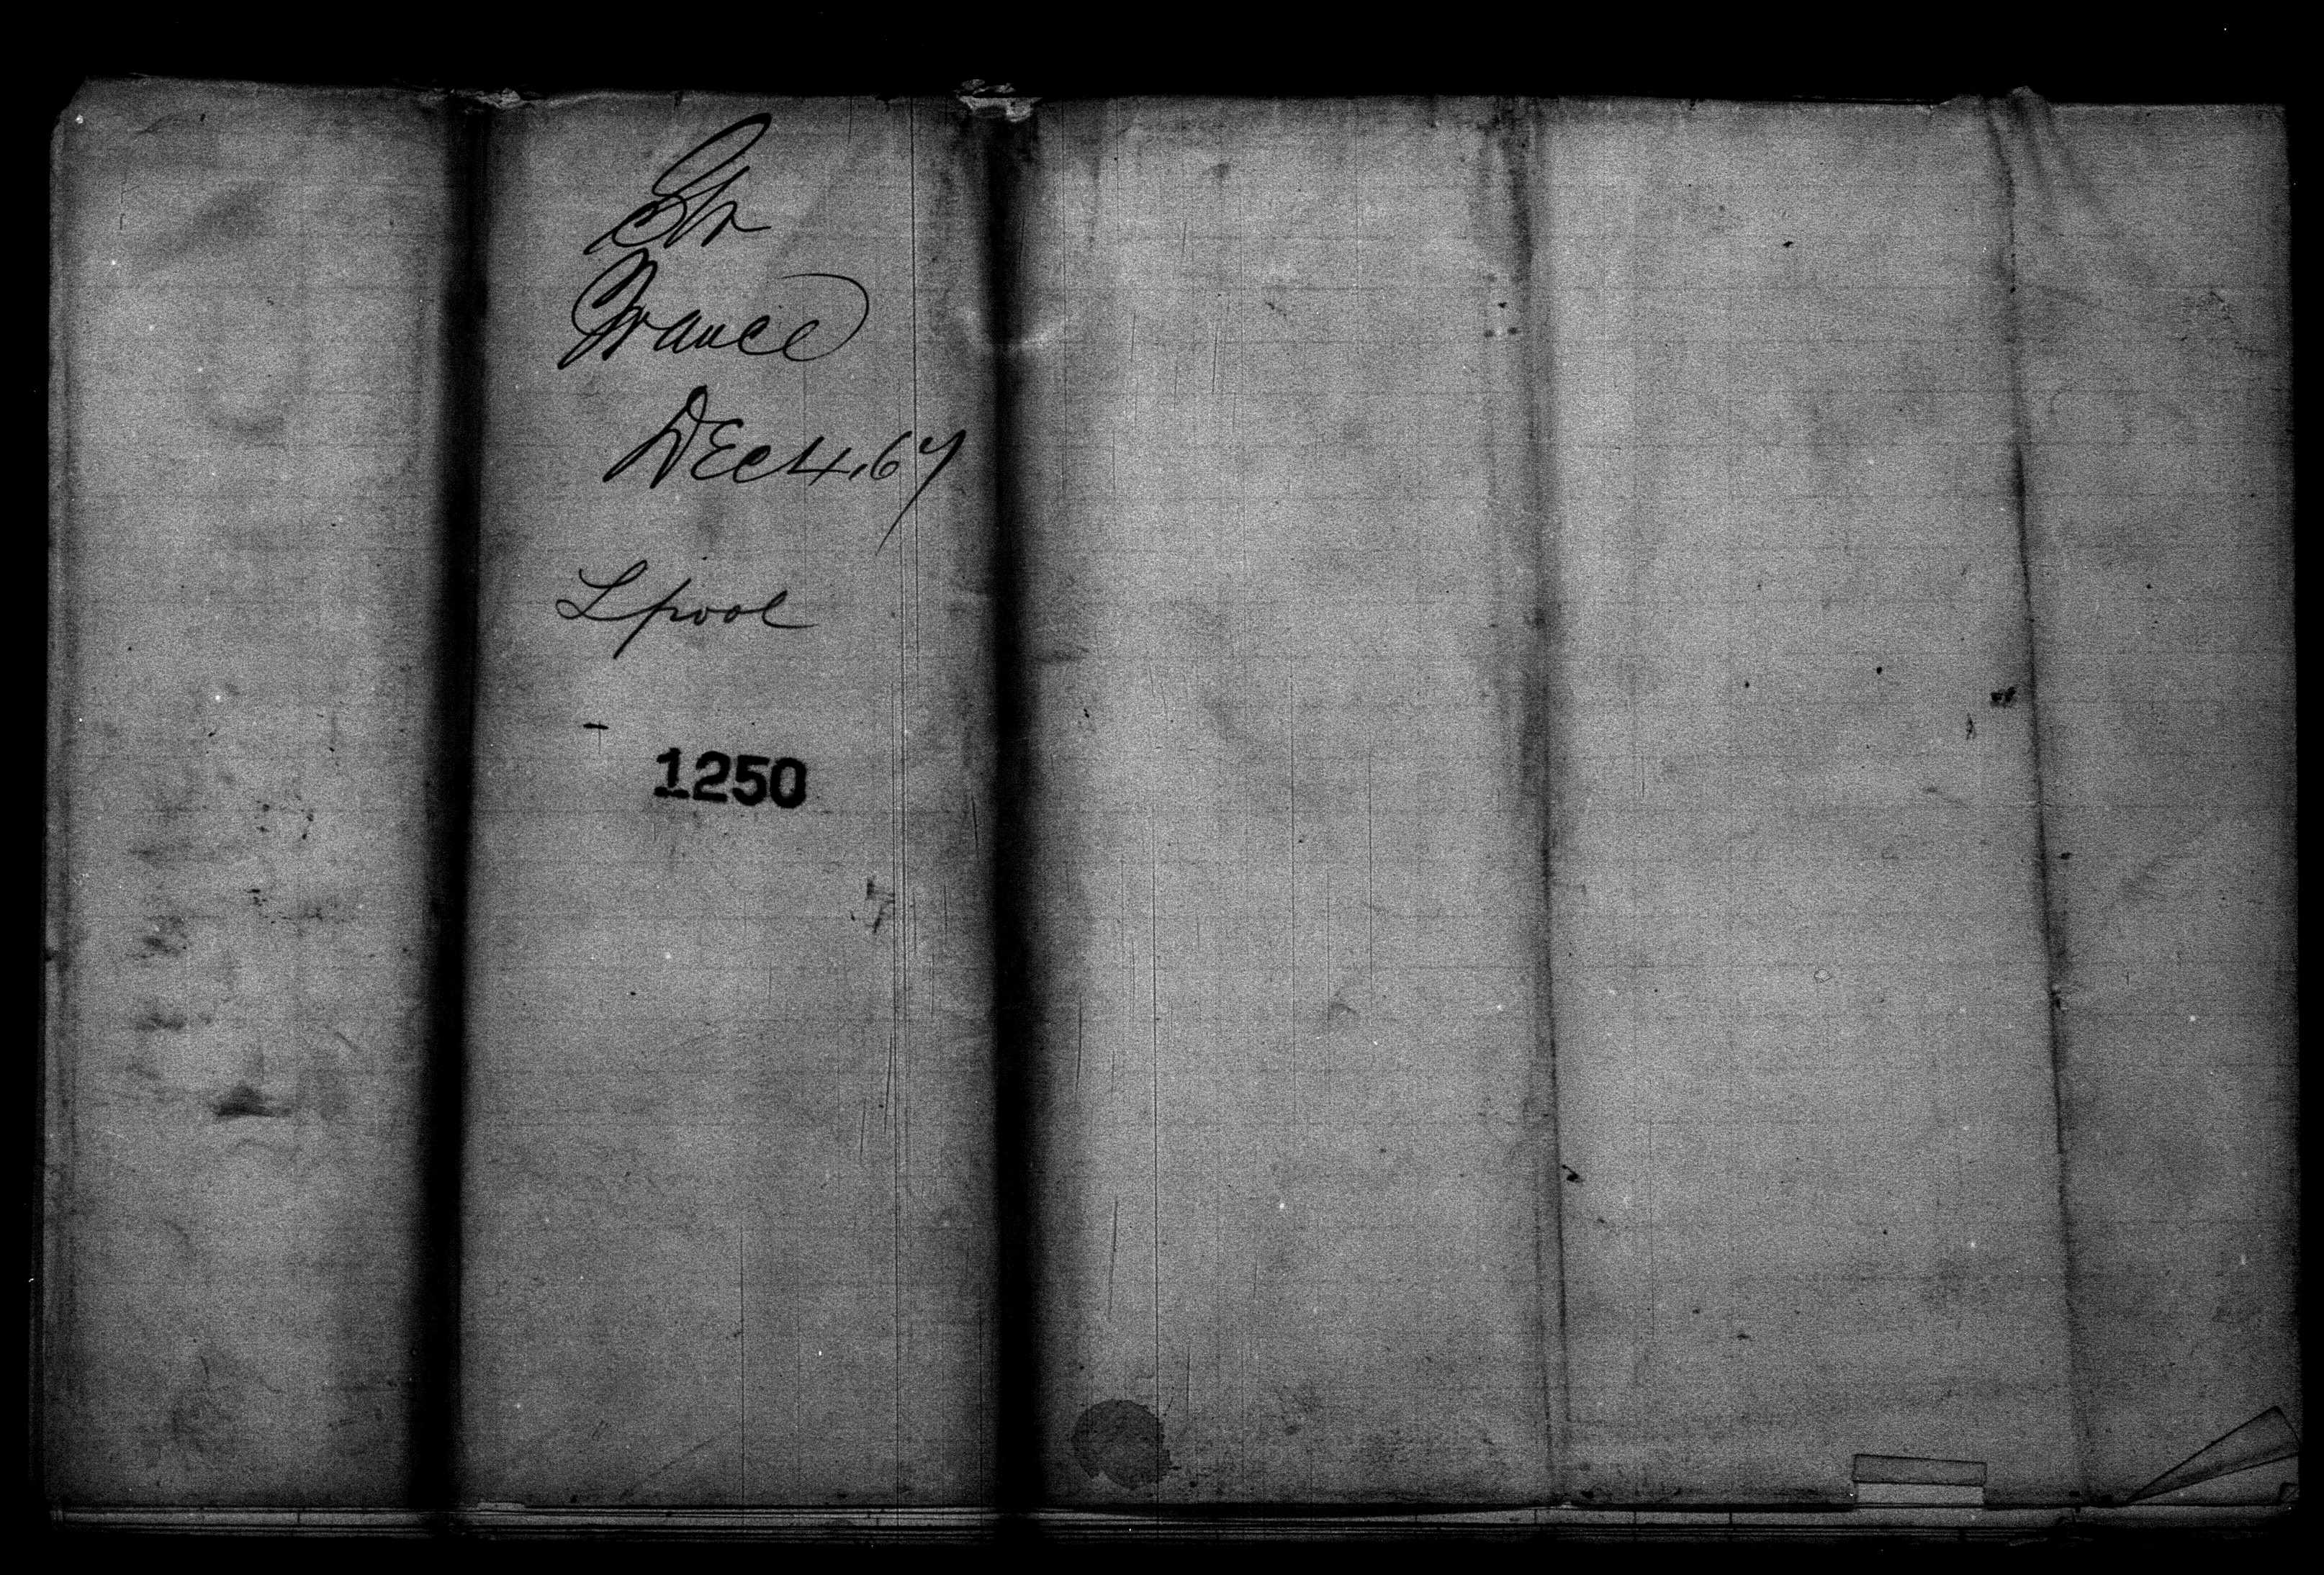 Str
France
DEC 4, 67
Lpool
1250